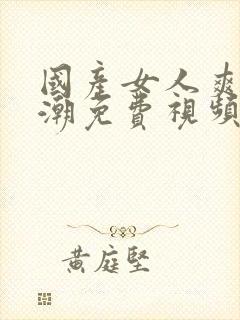 國產女人爽
潮免費視頻
黃庭堅